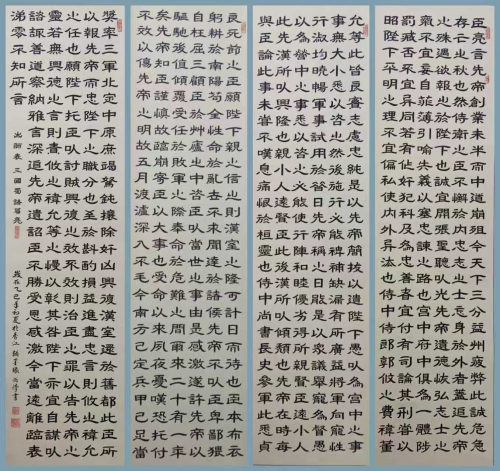 臣亮言先帝創業未半而中道崩殂今天下三分益州疲弊此誠危急
存亡之秋也然侍衛之臣不懈於內忠志之士忘身於外者蓋追先帝
之殊遇欲報之於陛下也誠宜開張聖聽以光先帝遺德恢弘志士之
氣不宜妄自菲薄引喻失義以塞忠諫之路也宮中府中俱為一體陟
罰臧否不宜異同若有作奸犯科及為忠善者宜付有司論其刑賞以
昭陛下平明之理不宜偏私使內外異法也侍中侍郎郭攸之費禕董
允等此皆良實志慮忠純是以先帝簡拔以遺陛下愚以為宮中之
事無大小悉以咨之然後施行必能裨補闕漏有所廣益將軍向寵性
行淑均曉暢軍事試用於昔日先帝稱之曰能是以眾議舉寵為督愚
以為營中之事悉以咨之必能使行陣和睦優劣得所親賢臣遠小人
此先漢所以興隆也親小人遠賢臣此後漢所以傾頹也先帝在時每
與臣論此事未嘗不歎息痛恨於桓靈也侍中尚書長史參軍此悉貞
良死節之臣願陛下親之信之則漢室之隆可計日而待也臣本布衣
躬耕於南陽苟全性命於亂世不求聞達於諸侯先帝不以臣卑鄙猥
自枉屈三顧臣於草廬之中咨臣以當世之事由是感激遂許先帝以
驅馳後值傾覆受任於敗軍之際奉命於危難之間爾來二十有一年
矣先帝知臣謹慎故臨崩寄臣以大事也受命以來夙夜憂歎恐託付
不效以傷先帝之明故五月渡瀘深入不毛今南方已定兵甲已足當
獎率三軍北定中原庶竭駑鈍攘除奸凶興復漢室還於舊都此臣所
以報先帝而忠陛下之職分也至於斟酌損益進盡忠言則攸之禕允
之任也願陛下託臣以討賊興復之效不效則治臣之罪以告先帝之
靈若無興德之言則責攸之禕允等之慢以彰其咎陛下亦宜自謀以
諮諏善道察納雅言深追先帝遺詔臣不勝受恩感激今當遠離臨表
涕零不知所言
出師表 三國蜀 諸葛亮
歲在乙巳年初夏於香江